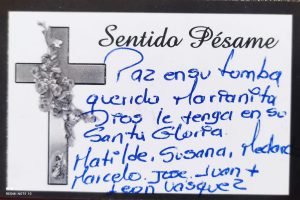 Sentido Pésame
Paz en su tumba
querido Marianita
Dios le tenga en su
Santa Gloria.
Matilde, Susana,
Marcelo, Jose, Juan +
Leon Vasquez